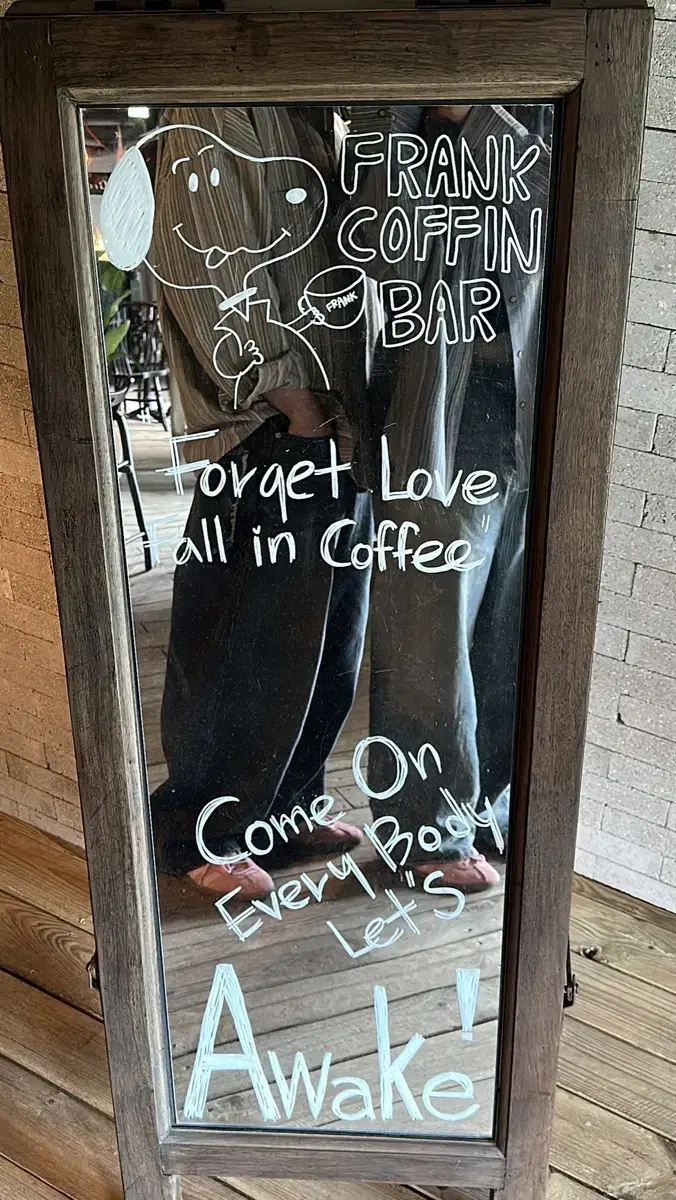 FRANK
COFFIN
BAR
FRANK
Forget Love
Fall in Coffee"
Come On
EveryBody
Let"S
Awake!